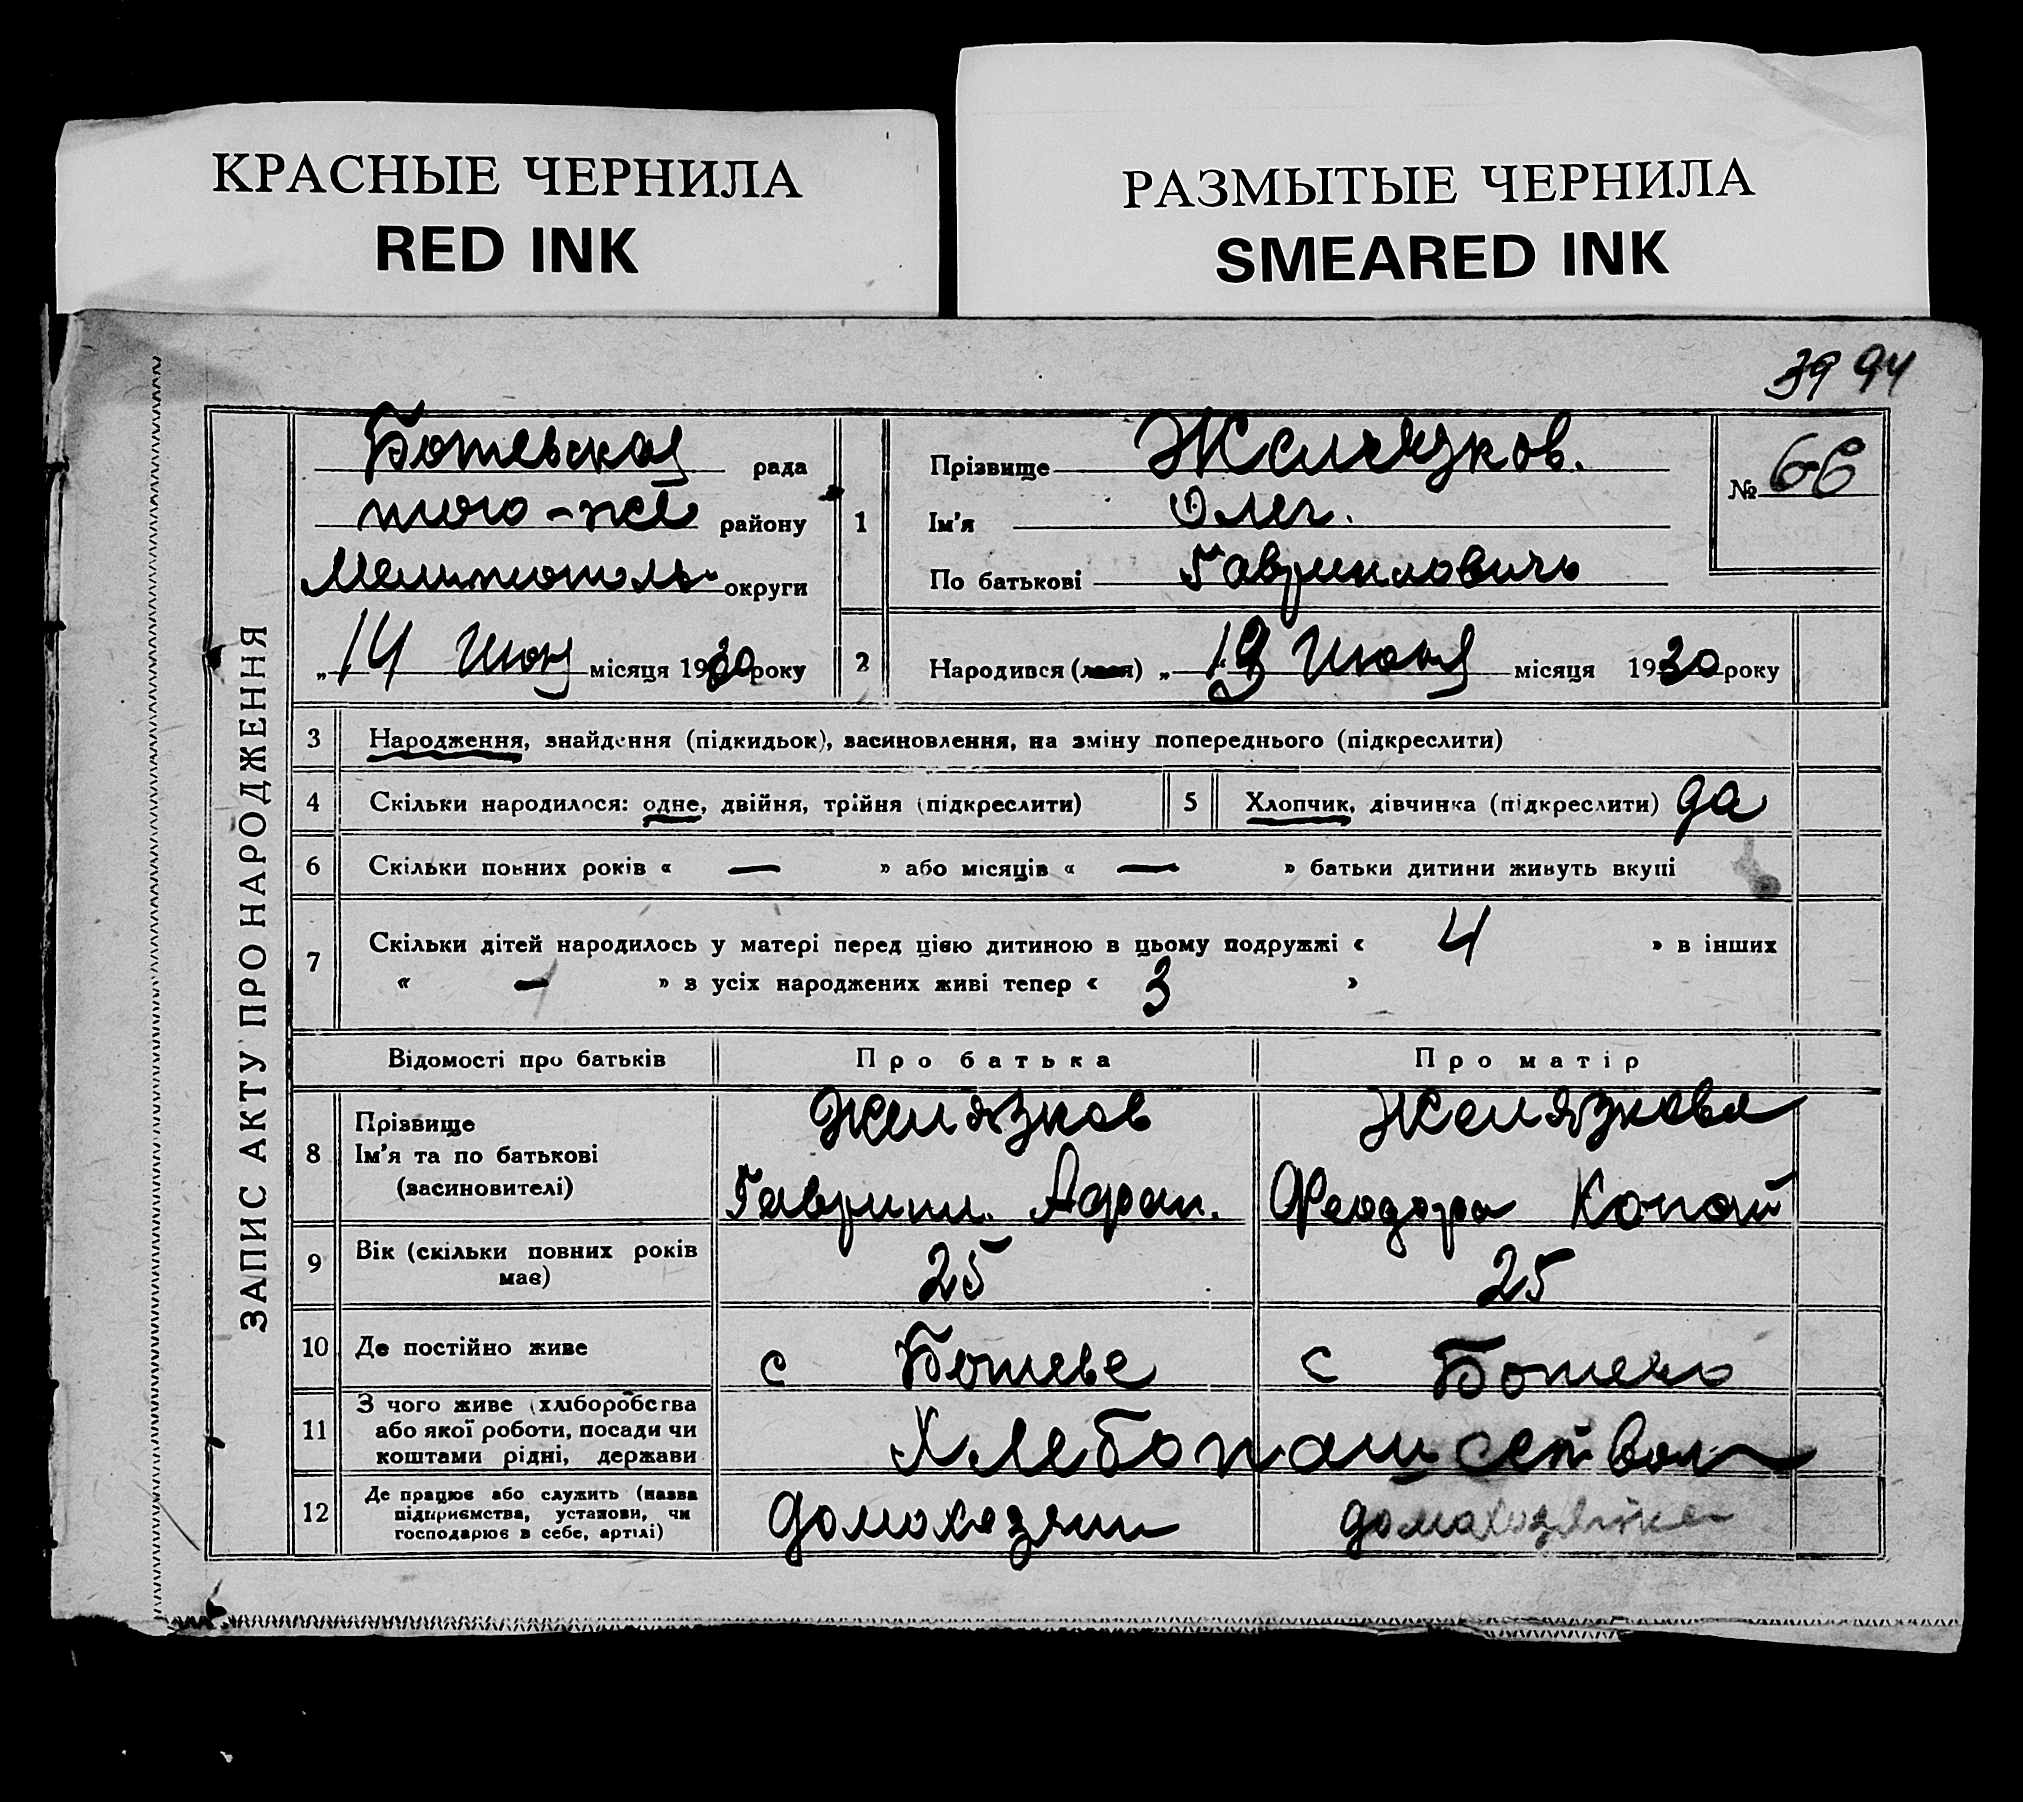 КРАСНЫЕ ЧЕРНИЛА
RED INK
РАЗМЫТЫЕ ЧЕРНИЛА
SMEARED INK
39 94
ЗАПИС АКТУ ПРО НАРОДЖЕННЯ
Ботевская рада
того-же району
Мелитополь округи
„14 Июня місяця 1930 року
1
Прізвище Желязков.
Ім'я Олег.
По батькові Гавриилович
№ 66
2 Народився (лася) „ 13 Июня місяця 1930 року
3 Народження, знайдення (підкидьок), засиновлення, на зміну попереднього (підкреслити)
4 Скільки народилося: одне, двійня, трійня (підкреслити) 5 Хлопчик, дівчинка (підкреслити) да
6 Скільки повних років « — » або місяців « — » батьки дитини живуть вкупі
7 Скільки дітей народилось у матері перед цією дитиною в цьому подружжі « 4 » в інших
« — » в усіх народжених живі тепер « 3 »
Відомості про батьків Про батька Про матір
8 Прізвище Желязков Желязкова
Ім'я та по батькові Гавриил. Феодора
(засиновителі)
9 Вік (скільки повних років має) 25 25
10 Де постійно живе с Ботеве с Ботево
11 З чого живе (хліборобства
або якої роботи, посади чи
коштами рідні, держави Хлебопашеством
12 Де працює або служить (назва
підприємства, установи, чи
господарює в себе, артілі) домохозяин домахозяйка